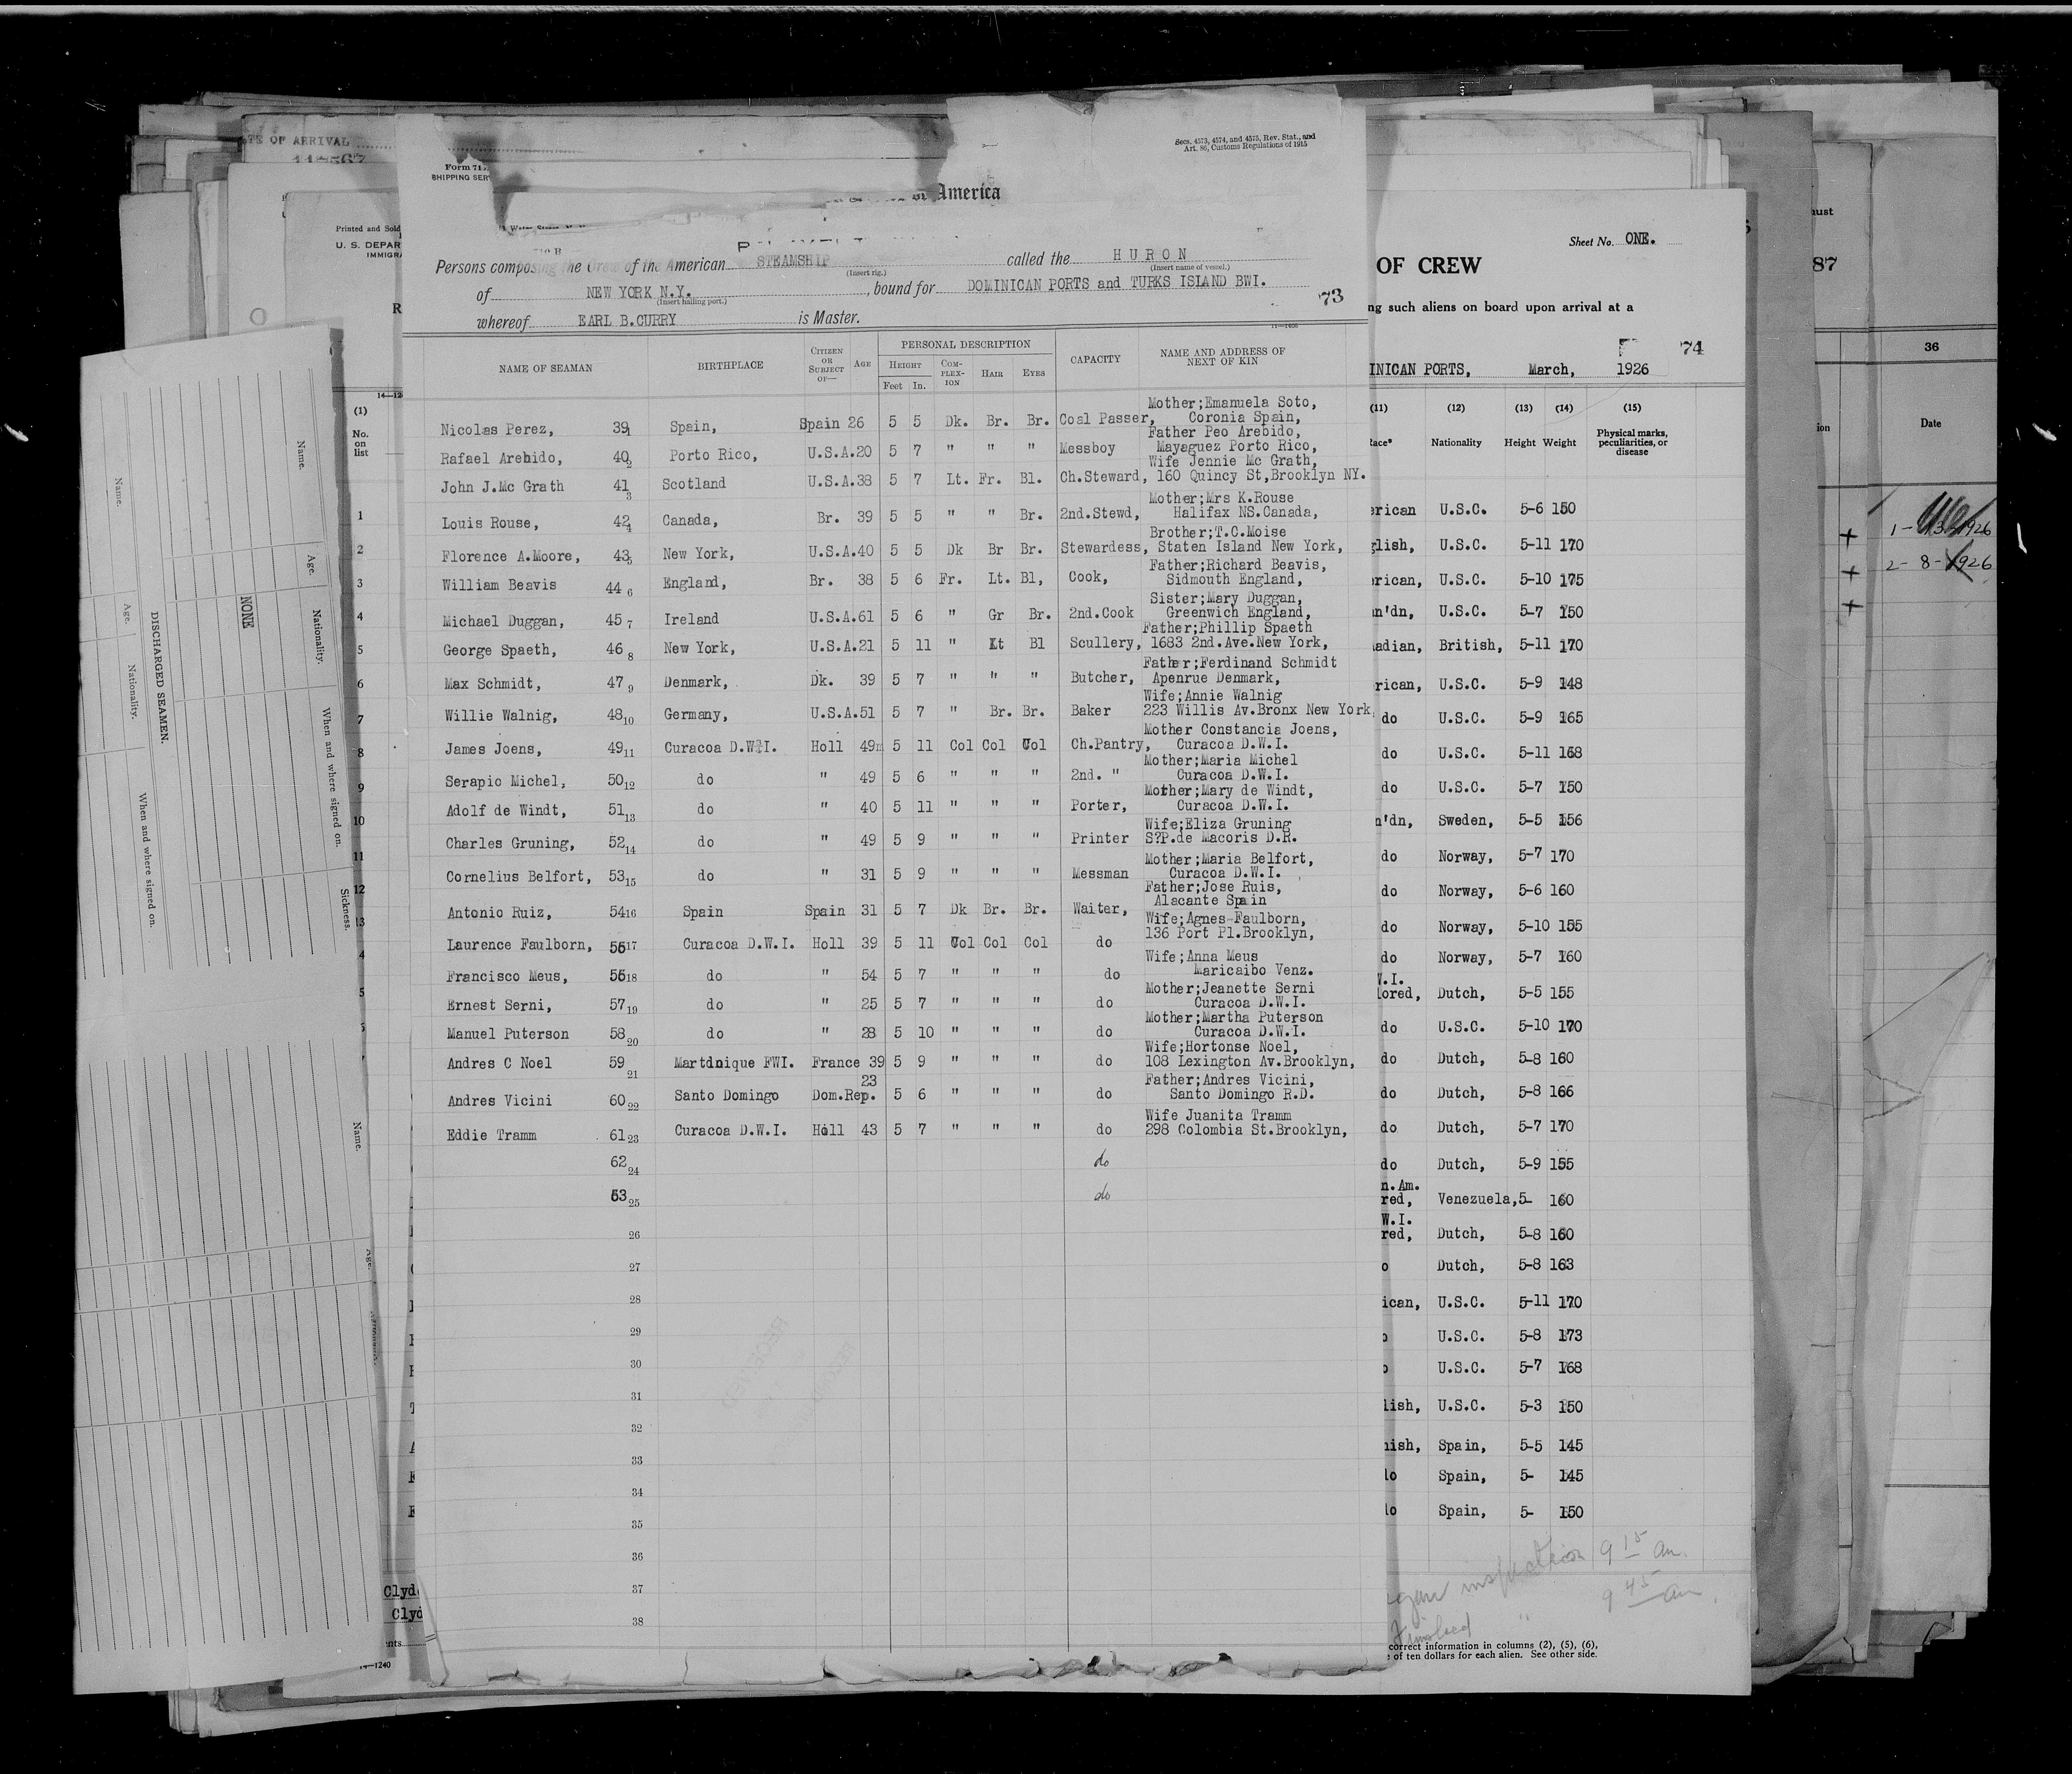 TE OF ARRIVAL
Secs. 4573, 4574, and 4575, Rev. Stat., and
Art. 86, Customs Regulations of 1915
SHIPPING SER
America
Persons composing the Crew of the American STEAMSHIP called the HURON
(Insert rig.) (Insert name of vessel.)
of NEW YORK N.Y. , bound for DOMINICAN PORTS and TURKS ISLAND BWI.
(Insert hailing port.)
whereof EARL B.CURRY is Master.
73
NAME OF SEAMAN BIRTHPLACE CITIZEN OR SUBJECT OF— AGE PERSONAL DESCRIPTION CAPACITY NAME AND ADDRESS OF NEXT OF KIN
HEIGHT COM-PLEX-ION HAIR EYES
Feet In.
Nicolas Perez, 39 1 Spain, Spain 26 5 5 Dk. Br. Br. Coal Passer, Mother;Emanuela Soto, Coronia Spain,
Rafael Arebido, 40 2 Porto Rico, U.S.A.20 5 7 " " " Messboy Father Peo Arebido, Mayaguez Porto Rico,
John J.Mc Grath 41 3 Scotland U.S.A.38 5 7 Lt. Fr. Bl. Ch.Steward, Wife Jennie Mc Grath, 160 Quincy St,Brooklyn NY.
Louis Rouse, 42 4 Canada, Br. 39 5 5 " " Br. 2nd.Stewd, Mother;Mrs K.Rouse Halifax NS.Canada,
Florence A.Moore, 43 5 New York, U.S.A.40 5 5 Dk Br Br. Stewardess, Brother;T.C.Moise Staten Island New York,
William Beavis 44 6 England, Br. 38 5 6 Fr. Lt. Bl, Cook, Father;Richard Beavis, Sidmouth England,
Michael Duggan, 45 7 Ireland U.S.A.61 5 6 " Gr Br. 2nd.Cook Sister;Mary Duggan, Greenwich England,
George Spaeth, 46 8 New York, U.S.A.21 5 11 " Lt Bl Scullery, Father;Phillip Spaeth 1683 2nd.Ave.New York,
Max Schmidt, 47 9 Denmark, Dk. 39 5 7 " " " Butcher, Father;Ferdinand Schmidt Apenrue Denmark,
Willie Walnig, 48 10 Germany, U.S.A.51 5 7 " Br. Br. Baker Wife;Annie Walnig 223 Willis Av.Bronx New York
James Joens, 49 11 Curacoa D.W.I. Holl 49 5 11 Col Col Col Ch.Pantry, Mother Constancia Joens, Curacoa D.W.I.
Serapio Michel, 50 12 do " 49 5 6 " " " 2nd. " Mother;Maria Michel Curacoa D.W.I.
Adolf de Windt, 51 13 do " 40 5 11 " " " Porter, Mother;Mary de Windt, Curacoa D.W.I.
Charles Gruning, 52 14 do " 49 5 9 " " " Printer Wife;Eliza Gruning S?P.de Macoris D.R.
Cornelius Belfort, 53 15 do " 31 5 9 " " " Messman Mother;Maria Belfort, Curacoa D.W.I.
Antonio Ruiz, 54 16 Spain Spain 31 5 7 Dk Br. Br. Waiter, Father;Jose Ruis, Alacante Spain
Laurence Faulborn, 55 17 Curacoa D.W.I. Holl 39 5 11 Col Col Col do Wife;Agnes Faulborn, 136 Port Pl.Brooklyn,
Francisco Meus, 56 18 do " 54 5 7 " " " do Wife;Anna Meus Maricaibo Venz.
Ernest Serni, 57 19 do " 25 5 7 " " " do Mother;Jeanette Serni Curacoa D.W.I.
Manuel Puterson 58 20 do " 28 5 10 " " " do Mother;Martha Puterson Curacoa D.W.I.
Andres C Noel 59 21 Martinique FWI. France 39 5 9 " " " do Wife;Hortonse Noel, 108 Lexington Av.Brooklyn,
Andres Vicini 60 22 Santo Domingo Dom.Rep. 23 5 6 " " " do Father;Andres Vicini, Santo Domingo R.D.
Eddie Tramm 61 23 Curacoa D.W.I. Holl 43 5 7 " " " do Wife Juanita Tramm 298 Colombia St.Brooklyn,
62 24 do
63 25 do
26
27
28
29
30
31
32
33
34
35
36
37
38
Printed and Sold
U. S. DEPAR
IMMIGRA
(1)
No. on list
1
2
3
4
5
6
7
8
9
10
11
12
13
Clyde
Clyd
14—1240
Name. Age. Nationality. When and where signed on. Sickness.
NONE
DISCHARGED SEAMEN.
Name. Age. Nationality. When and where signed on.
Name.
Age.
Sheet No. ONE.
OF CREW
ng such aliens on board upon arrival at a
74
INICAN PORTS, March, 1926
(11) (12) (13) (14) (15)
Race* Nationality Height Weight Physical marks, peculiarities, or disease
erican U.S.C. 5-6 150
glish, U.S.C. 5-11 170
rican, U.S.C. 5-10 175
n'dn, U.S.C. 5-7 150
adian, British, 5-11 170
rican, U.S.C. 5-9 148
do U.S.C. 5-9 165
do U.S.C. 5-11 168
do U.S.C. 5-7 150
n'dn, Sweden, 5-5 156
do Norway, 5-7 170
do Norway, 5-6 160
do Norway, 5-10 155
do Norway, 5-7 160
W.I.
lored, Dutch, 5-5 155
do U.S.C. 5-10 170
do Dutch, 5-8 160
do Dutch, 5-8 166
do Dutch, 5-7 170
do Dutch, 5-9 155
n.Am.
red, Venezuela,5- 160
W.I.
red, Dutch, 5-8 160
o Dutch, 5-8 163
ican, U.S.C. 5-11 170
o U.S.C. 5-8 173
o U.S.C. 5-7 168
lish, U.S.C. 5-3 150
nish, Spain, 5-5 145
do Spain, 5- 145
do Spain, 5- 150
inspection 9 15 am.
Finished " 9 45 am.
correct information in columns (2), (5), (6),
of ten dollars for each alien. See other side.
ust
87
36
Date
ion
+ 1- 1926
+ 2- 8- 1926
+